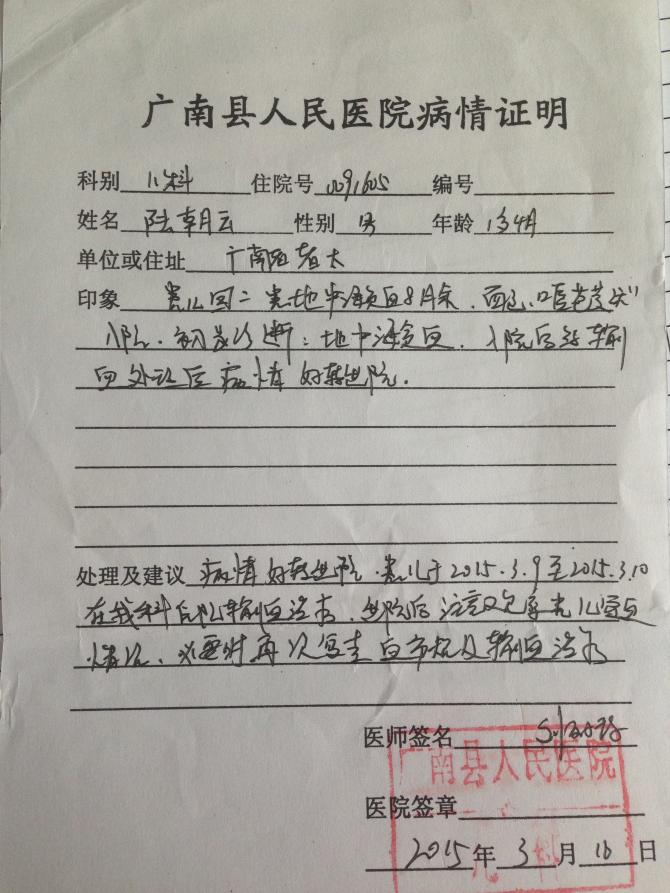 广南县人民医院病情证明
科别 儿科 住院号 0091605 编号
姓名 陆朝云 性别 男 年龄 1岁4月
单位或住址 广南县者太
印象 患儿因"患地中海贫血8月余,面色、口唇苍
入院。初步诊断:地中海贫血。入院后给输
血处理后病情好转出院。
处理及建议 病情好转出院。患儿于2015.3.9至2015.3.10
在我科住院输血治疗,出院后注意观察患儿贫血
情况,必要时再次复查血常规及输血治疗
医师签名
广南县人民医院
医院签章
儿科
2015年3月10日